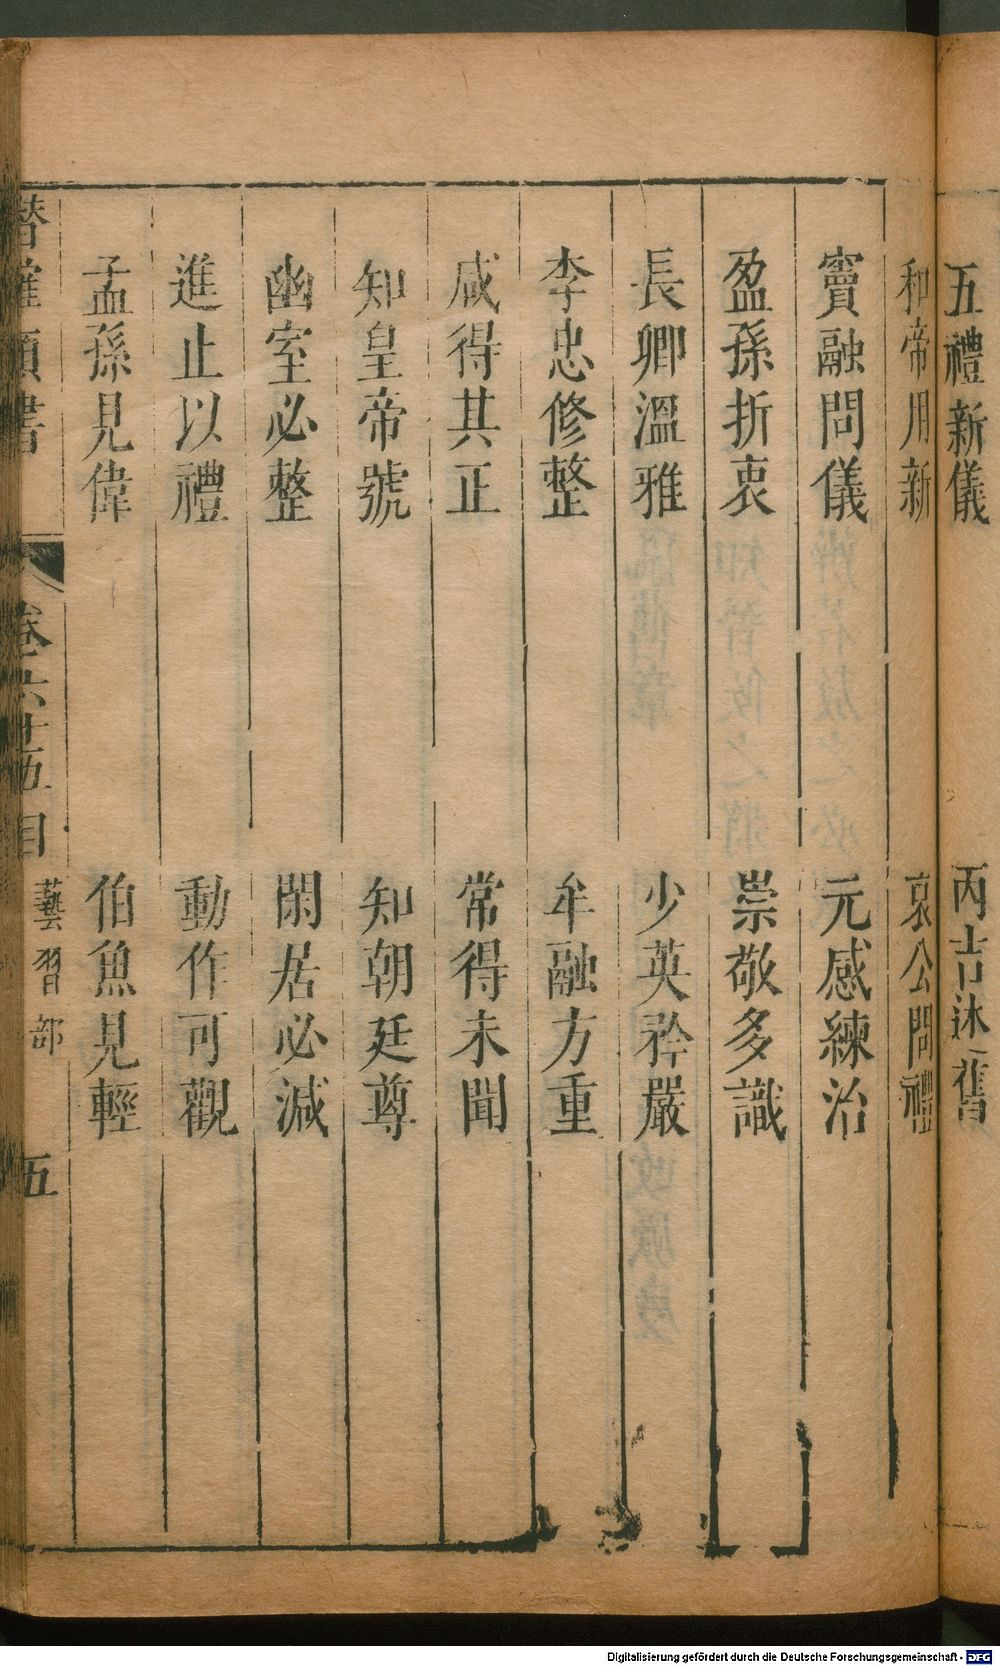 五禮新儀　丙吉述舊
和帝用新　哀公問禮
竇融問儀　元感練治
盈孫折衷　崇敬多識
長卿溫雅　少英矜嚴
李忠修整　牟融方重
咸得其正　常得未聞
知皇帝號　知朝廷尊
幽室必整　閑居必減
進止以禮　動作可觀
孟孫見偉　伯魚見輕
潛確類書　卷六十五目　藝習部　五
Digitalisierung gefördert durch die Deutsche Forschungsgemeinschaft - DFG